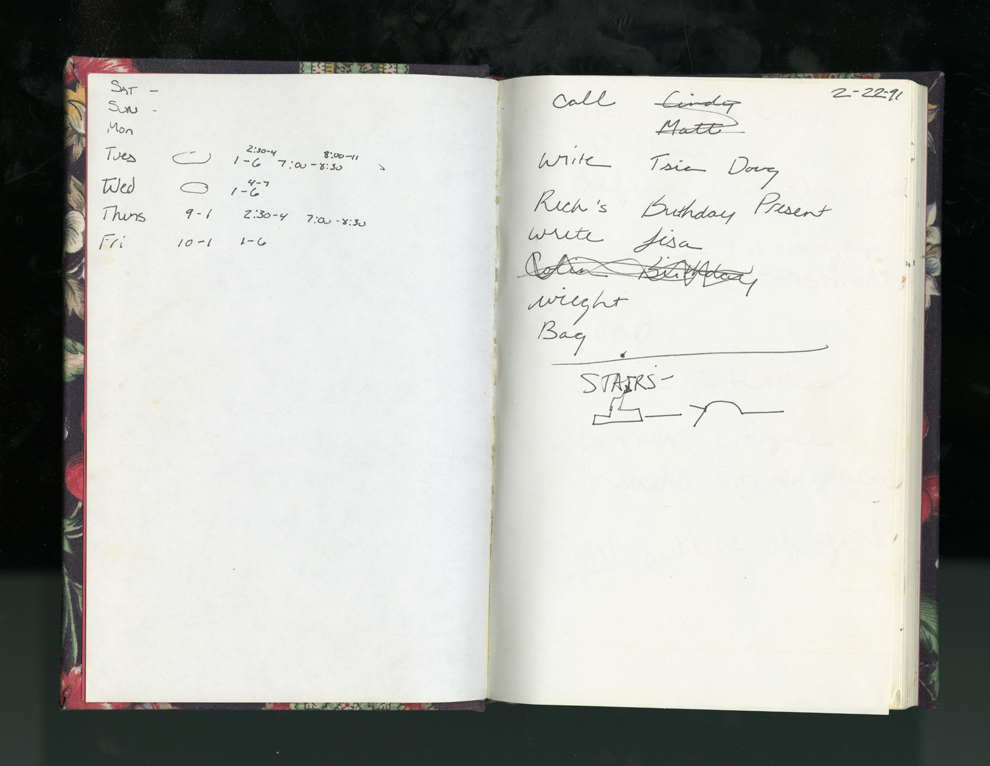 SAT -
SUN -
Mon
Tues 2:30-4 8:00-11
1-6 7:00-8:30
Wed 4-7
1-6
Thurs 9-1 2:30-4 7:00-8:30
Fri 10-1 1-6
2-22-91
Call Cindy
Matt
Write Doug
Rich's Birthday Present
Write Lisa
Colin Birthday
wieght
Bag
STAIRS-